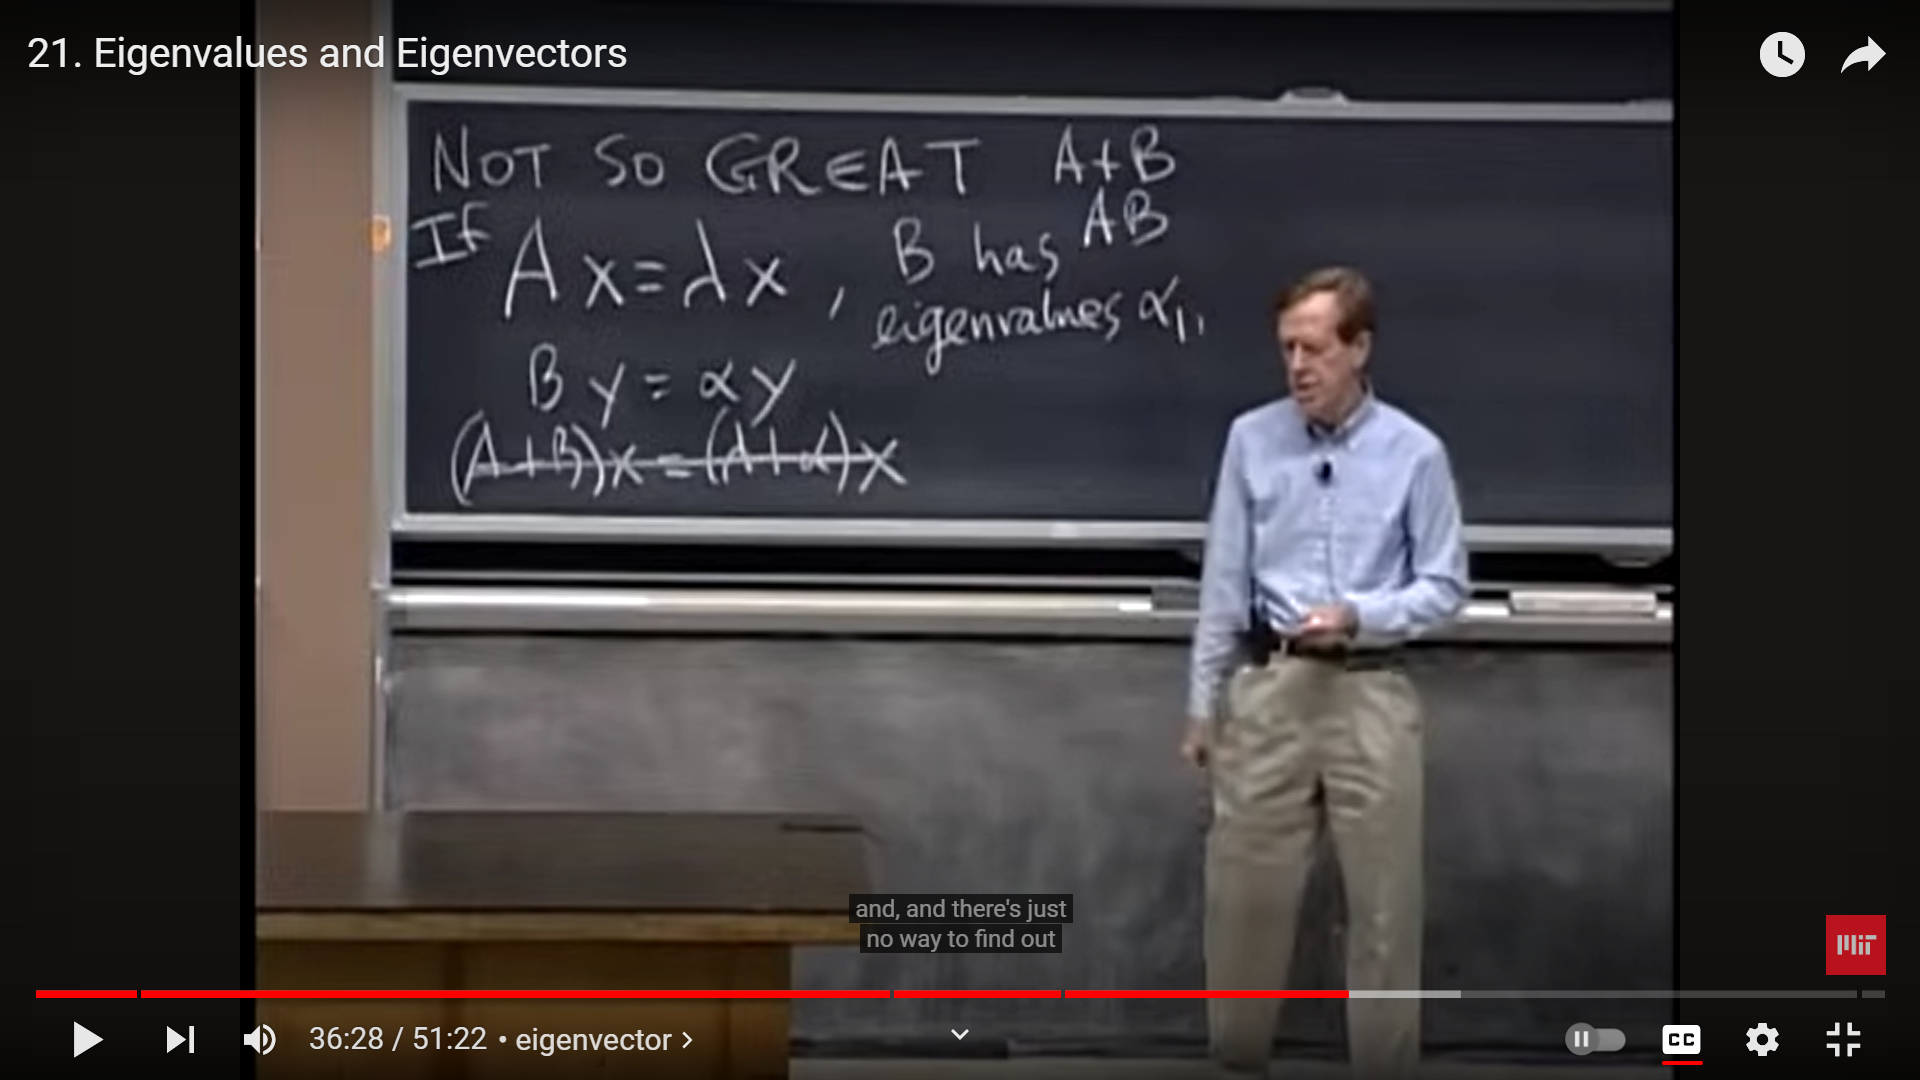 21. Eigenvalues and Eigenvectors
NOT SO GREAT A+B
AB
If Ax=λx, B has
eigenvalues α1,
By=αy
(A+B)x=(λ+α)x
and, and there's just
no way to find out
MIT
36:28 / 51:22 • eigenvector >
CC